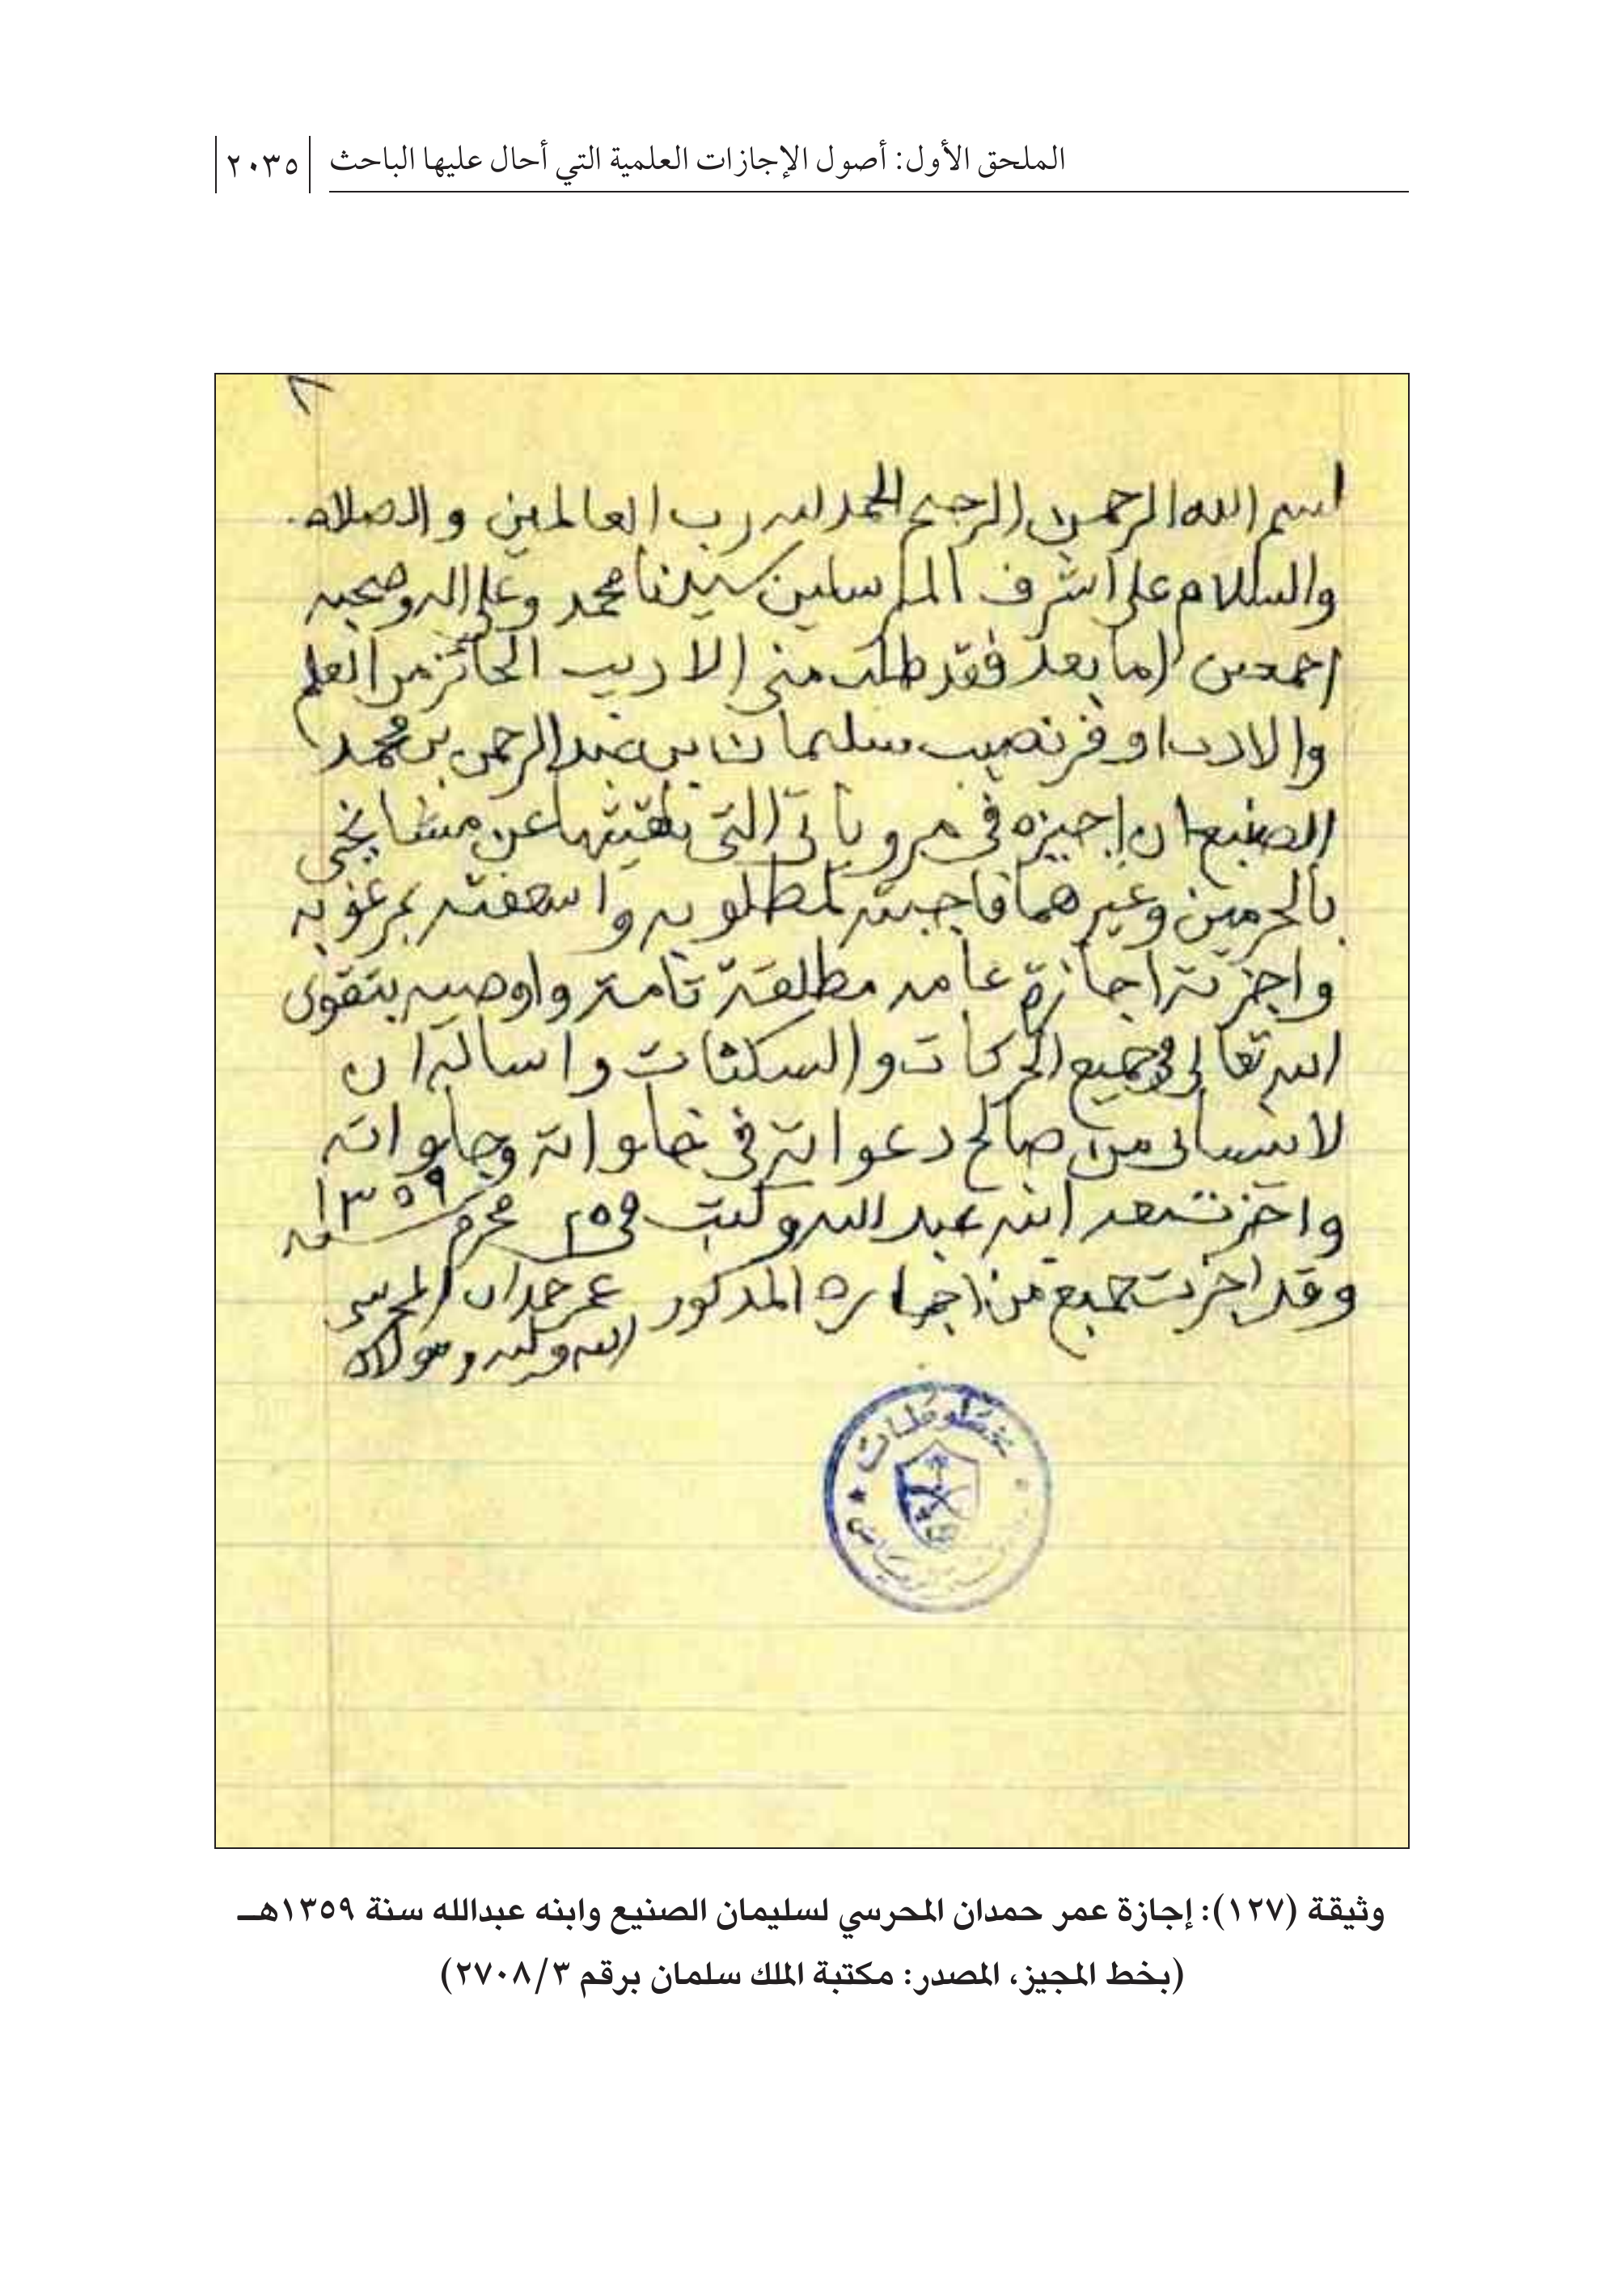 الملحق الأول: أصول الإجازات العلمية التي أحال عليها الباحث ٢٠٣٥
بسم الله الرحمن الرحيم الحمد لله رب العالمين والصلاه
والسلام على اشرف المرسلين سيدنا محمد وعلى اله وصحبه
اجمعين اما بعد فقد طلب مني الاديب الحائز من العلم
والادب اوفر نصيب سليمان بن عبد الرحمن بن محمد
الصنيع ان اجيزه في مروياتي التي تلقيتها عن مشايخي
بالحرمين وغيرهما فاجبته لمطلوبه واسعفته بمرغوبه
واجزته اجازة عامه مطلقة تامة واوصيه بتقوى
الله تعالى في جميع الحركات والسكنات واساله ان
لا ينساني من صالح دعواته في خلواته وجلواته
واجزت بعد ابنه عبد الله وكتب في ٢٥ محرم سنه ١٣٥٩
وقد اجزت جميع من اجازه المذكور عمر حمدان المحرسي
الله وليه ومولاه
مخطوطات
وثيقة (١٢٧): إجازة عمر حمدان المحرسي لسليمان الصنيع وابنه عبدالله سنة ١٣٥٩هـ
(بخط المجيز، المصدر: مكتبة الملك سلمان برقم ٢٧٠٨/٣)